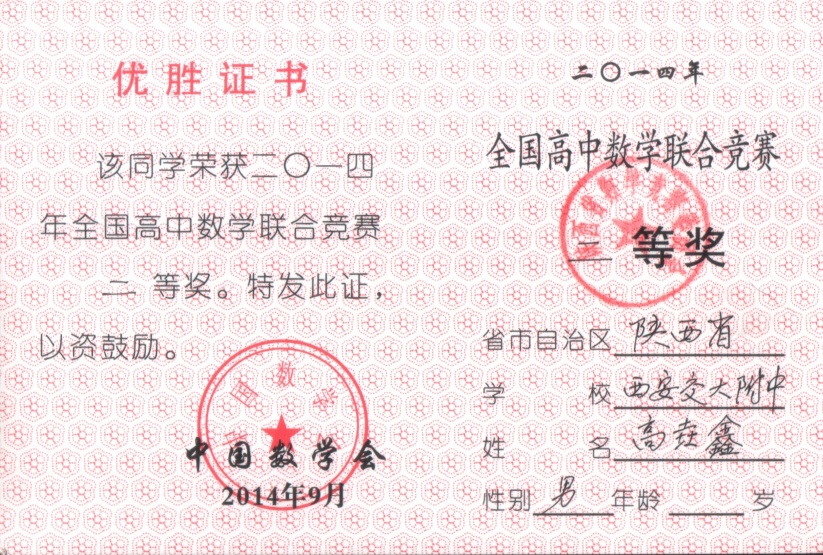 优胜证书
该同学荣获二〇一四
年全国高中数学联合竞赛
二 等奖。特发此证，
以资鼓励。
中国数学会
中国数学会
2014年9月
二〇一四年
全国高中数学联合竞赛
二 等奖
省市自治区 陕西省
学 校 西安交大附中
姓 名 高 鑫
性别 男 年龄 岁